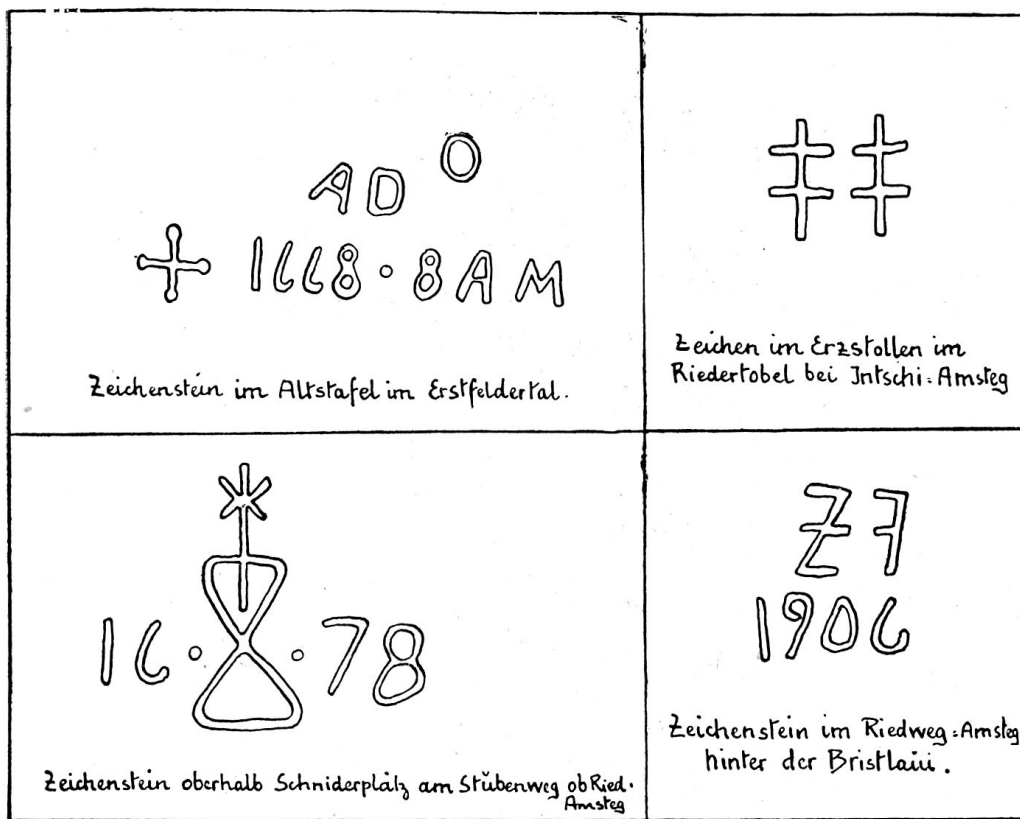 AD O
1668 · 8 A M
Zeichenstein im Altstafel im Erstfeldertal.
Zeichen im Erzstollen im
Riedertobel bei Intschi=Amsteg
16 · · 78
Zeichenstein oberhalb Schniderplätz am Stübenweg ob Ried.
Amsteg
Z F
1906
Zeichenstein im Riedweg=Amsteg
hinter der Bristlaui.